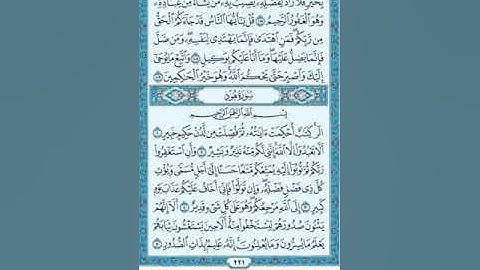 بِخَيْرٍ فَلَا رَآدَّ لِفَضْلِهِۦ يُصِيبُ بِهِۦ مَن يَشَآءُ مِنْ عِبَادِهِۦ
وَهُوَ ٱلْغَفُورُ ٱلرَّحِيمُ ١٠٧ قُلْ يَٰٓأَيُّهَا ٱلنَّاسُ قَدْ جَآءَكُمُ ٱلْحَقُّ
مِن رَّبِّكُمْ فَمَنِ ٱهْتَدَىٰ فَإِنَّمَا يَهْتَدِى لِنَفْسِهِۦ وَمَن ضَلَّ
فَإِنَّمَا يَضِلُّ عَلَيْهَا وَمَآ أَنَا۠ عَلَيْكُم بِوَكِيلٍ ١٠٨ وَٱتَّبِعْ مَا يُوحَىٰٓ
إِلَيْكَ وَٱصْبِرْ حَتَّىٰ يَحْكُمَ ٱللَّهُ وَهُوَ خَيْرُ ٱلْحَٰكِمِينَ ١٠٩
سُورَةُ هُودٍ
بِسْمِ ٱللَّهِ ٱلرَّحْمَٰنِ ٱلرَّحِيمِ
الٓر كِتَٰبٌ أُحْكِمَتْ ءَايَٰتُهُۥ ثُمَّ فُصِّلَتْ مِن لَّدُنْ حَكِيمٍ خَبِيرٍ ١
أَلَّا تَعْبُدُوٓا۟ إِلَّا ٱللَّهَ إِنَّنِى لَكُم مِّنْهُ نَذِيرٌ وَبَشِيرٌ ٢ وَأَنِ ٱسْتَغْفِرُوا۟
رَبَّكُمْ ثُمَّ تُوبُوٓا۟ إِلَيْهِ يُمَتِّعْكُم مَّتَٰعًا حَسَنًا إِلَىٰٓ أَجَلٍ مُّسَمًّى وَيُؤْتِ
كُلَّ ذِى فَضْلٍ فَضْلَهُۥ وَإِن تَوَلَّوْا۟ فَإِنِّىٓ أَخَافُ عَلَيْكُمْ عَذَابَ يَوْمٍ
كَبِيرٍ ٣ إِلَى ٱللَّهِ مَرْجِعُكُمْ وَهُوَ عَلَىٰ كُلِّ شَىْءٍ قَدِيرٌ ٤ أَلَآ إِنَّهُمْ
يَثْنُونَ صُدُورَهُمْ لِيَسْتَخْفُوا۟ مِنْهُ أَلَا حِينَ يَسْتَغْشُونَ ثِيَابَهُمْ
يَعْلَمُ مَا يُسِرُّونَ وَمَا يُعْلِنُونَ إِنَّهُۥ عَلِيمٌۢ بِذَاتِ ٱلصُّدُورِ ٥
٢٢١